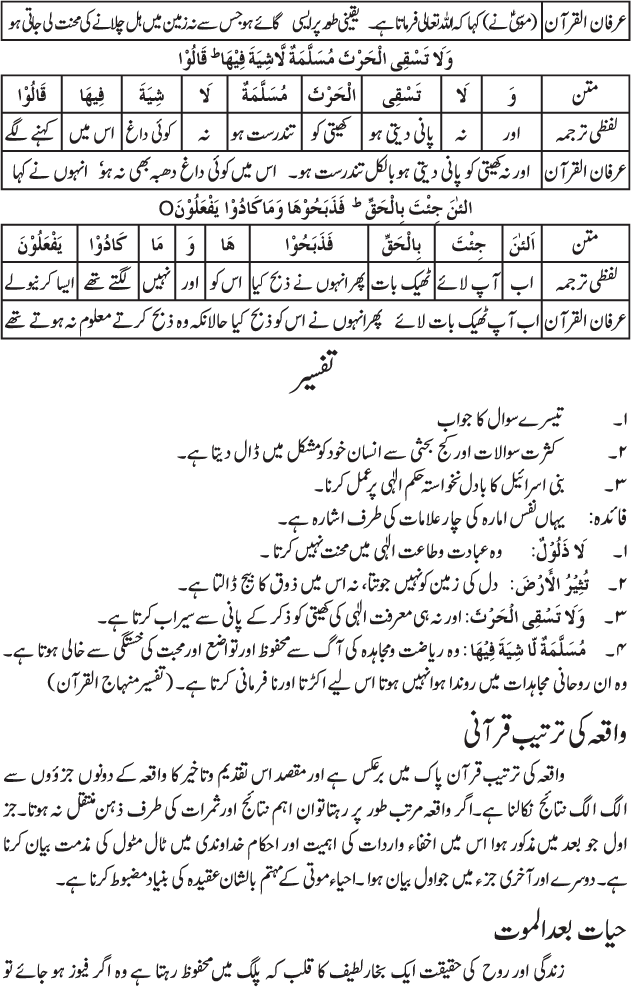 عرفان القرآن (موسیٰؑ نے) کہا کہ اللہ تعالیٰ فرماتا ہے۔ یقینی طور پر ایسی گائے ہو جس سے نہ زمین میں ہل چلانے کی محنت لی جاتی ہو
وَلَا تَسْقِی الْحَرْثَ مُسَلَّمَةٌ لَّاشِیَةَ فِیْهَا ؕ قَالُوْا
متن وَ لَا تَسْقِی الْحَرْثَ مُسَلَّمَةٌ لَا شِیَةَ فِیهَا قَالُوْا
لفظی ترجمہ اور نہ پانی دیتی ہو کھیتی کو تندرست ہو نہ کوئی داغ اس میں کہنے لگے
عرفان القرآن اور نہ کھیتی کو پانی دیتی ہو بالکل تندرست ہو۔ اس میں کوئی داغ دھبہ بھی نہ ہو‘ انہوں نے کہا
الْـٰٔنَ جِئْتَ بِالْحَقِّ ؕ فَذَبَحُوْهَا وَمَا كَادُوْا یَفْعَلُوْنَO
متن اَلْـٰٔنَ جِئْتَ بِالْحَقِّ فَذَبَحُوْا هَا وَ مَا كَادُوْا یَفْعَلُوْنَ
لفظی ترجمہ اب آپ لائے ٹھیک بات پھر انہوں نے ذبح کیا اس کو اور نہیں لگتے تھے ایسا کرنیوالے
عرفان القرآن اب آپ ٹھیک بات لائے پھر انہوں نے اس کو ذبح کیا حالانکہ وہ ذبح کرتے معلوم نہ ہوتے تھے
تفسیر
۱۔ تیسرے سوال کا جواب
۲۔ کثرت سوالات اور کج بحثی سے انسان خود کو مشکل میں ڈال دیتا ہے۔
۳۔ بنی اسرائیل کا بادل نخواستہ حکم الٰہی پر عمل کرنا۔
فائدہ: یہاں نفس امارہ کی چار علامات کی طرف اشارہ ہے۔
۱۔ لَا ذَلُوْلٌ: وہ عبادت و طاعت الٰہی میں محنت نہیں کرتا۔
۲۔ تُثِیْرُ الْأَرْضَ: دل کی زمین کو نہیں جوتتا، نہ اس میں ذوق کا بیج ڈالتا ہے۔
۳۔ وَلَا تَسْقِی الْحَرْثَ: اور نہ ہی معرفت الٰہی کی کھیتی کو ذکر کے پانی سے سیراب کرتا ہے۔
۴۔ مُسَلَّمَةٌ لَّا شِیَةَ فِیْهَا: وہ ریاضت و مجاہدہ کی آگ سے محفوظ اور تواضع اور محبت کی خستگی سے خالی ہوتا ہے۔
وہ ان روحانی مجاہدات میں روندا ہوا نہیں ہوتا اس لیے اکڑتا اور نافرمانی کرتا ہے۔ (تفسیر منہاج القرآن)
واقعہ کی ترتیب قرآنی
واقعہ کی ترتیب قرآن پاک میں برعکس ہے اور مقصد اس تقدیم و تاخیر کا واقعہ کے دونوں جزؤوں سے
الگ الگ نتائج نکالنا ہے۔ اگر واقعہ مرتب طور پر رہتا تو ان اہم نتائج اور ثمرات کی طرف ذہن منتقل نہ ہوتا۔ جز
اول جو بعد میں مذکور ہوا اس میں اخفاء واردات کی اہمیت اور احکام خداوندی میں ٹال مٹول کی مذمت بیان کرنا
ہے۔ دوسرے اور آخری جزء میں جو اول بیان ہوا۔ احیاء موتی کے مہتم بالشان عقیدہ کی بنیاد مضبوط کرنا ہے۔
حیات بعد الموت
زندگی اور روح کی حقیقت ایک بخار لطیف کا قلب کہ پلگ میں محفوظ رہتا ہے وہ اگر فیوز ہو جائے تو